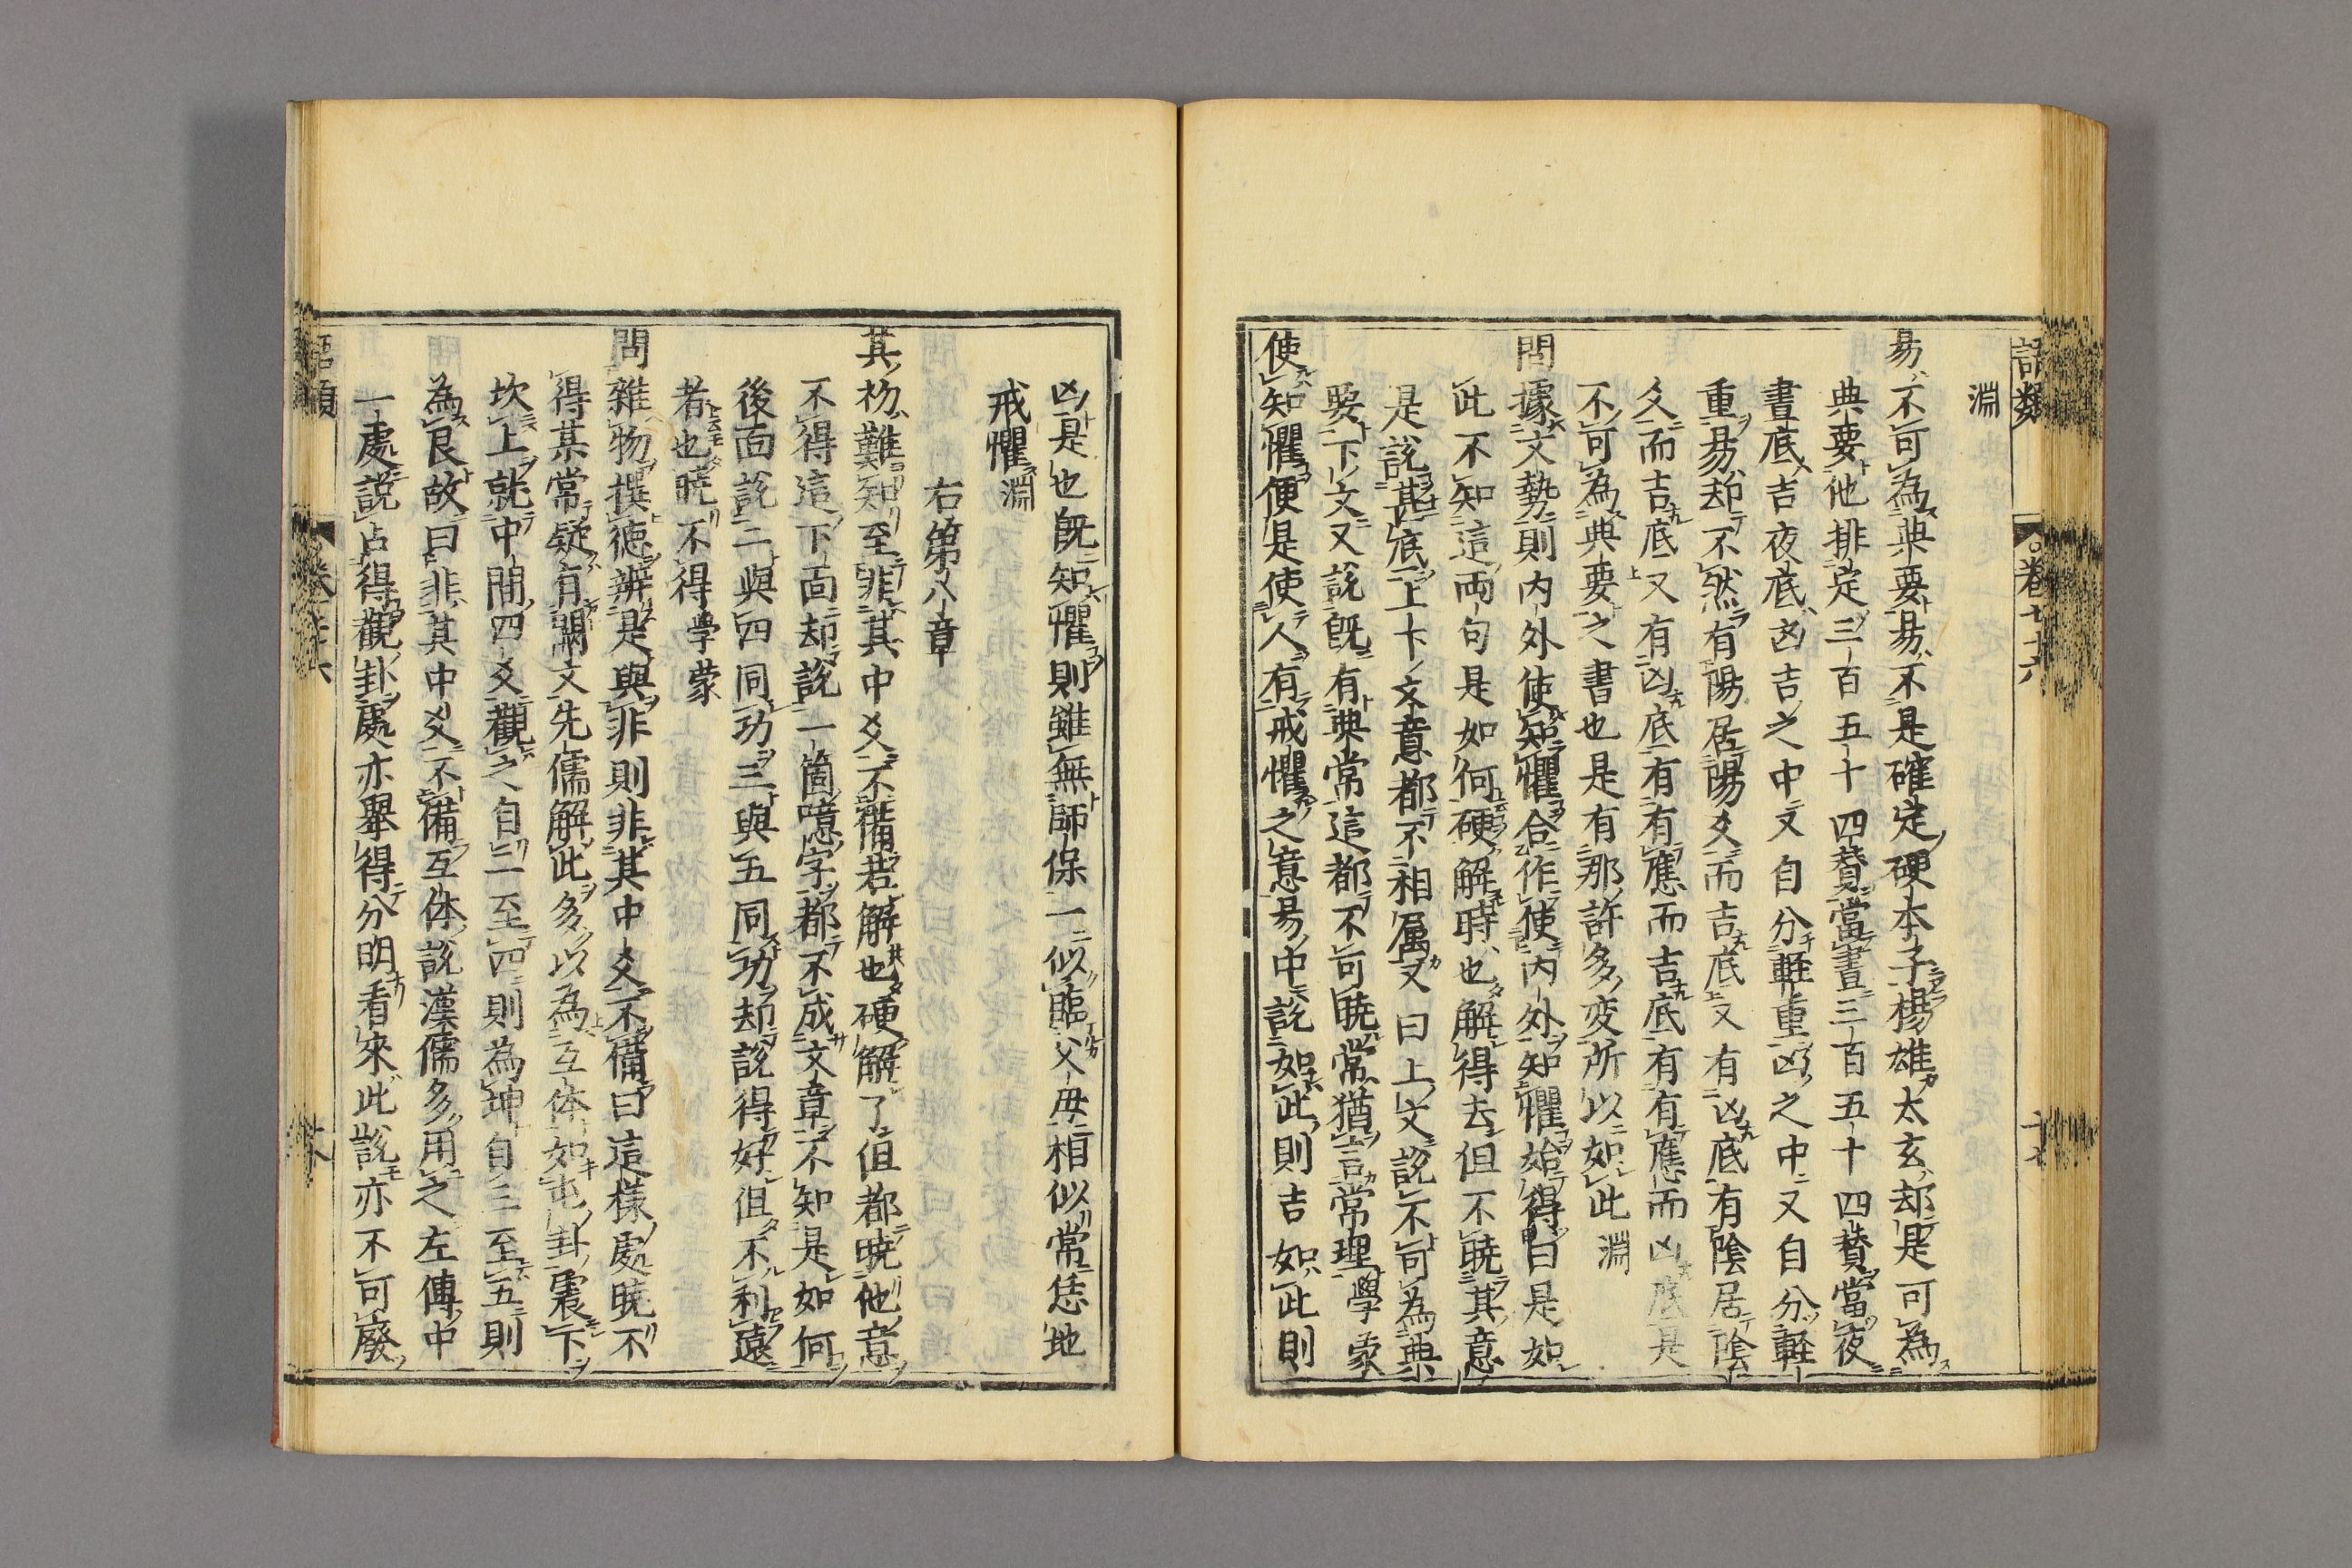 語類 卷七十六
淵
易不可為典要易不是確定硬本子楊雄太玄却是可為
典要他排定三百五十四賛當晝三百五十四賛當夜
晝底吉夜底凶吉之中又自分軽重凶之中又自分軽
重易却不然有陽居陽爻而吉底又有凶底有陰居陰
爻而吉底又有凶底有有應而吉底有有應而凶底是
不可為典要之書也是有那許多変所以如此淵
問據文勢則内外使知懼合作使内外知懼始得曰是如
此不知這両句是如何硬解時也解得去但不暁其意
是說甚底上下文意都不相属又曰上文說不可為典
要下文又說既有典常這都不可暁常猶言常理學蒙
使知懼便是使人有戒懼之意易中說如此則吉如此則
凶是也既知懼則雖無師保一似臨父母相似常恁地
戒懼淵
右第八章
其初難知至非其中爻不備若解也硬解了但都暁他意
不得這下面却說一箇噫字都不成文章不知是如何
後面說二與四同功三與五同功却說得好但不利遠
者也暁不得學蒙
問雜物撰徳辨是與非則非其中爻不備曰這様處暁不
得某常疑有闕文先儒解此多以為互体如屯卦震下
坎上就中間四爻觀之自二至四則為坤自三至五則
為艮故曰非其中爻不備互体說漢儒多用之左傳中
一處說占得觀卦處亦舉得分明看来此說亦不可廢
語類